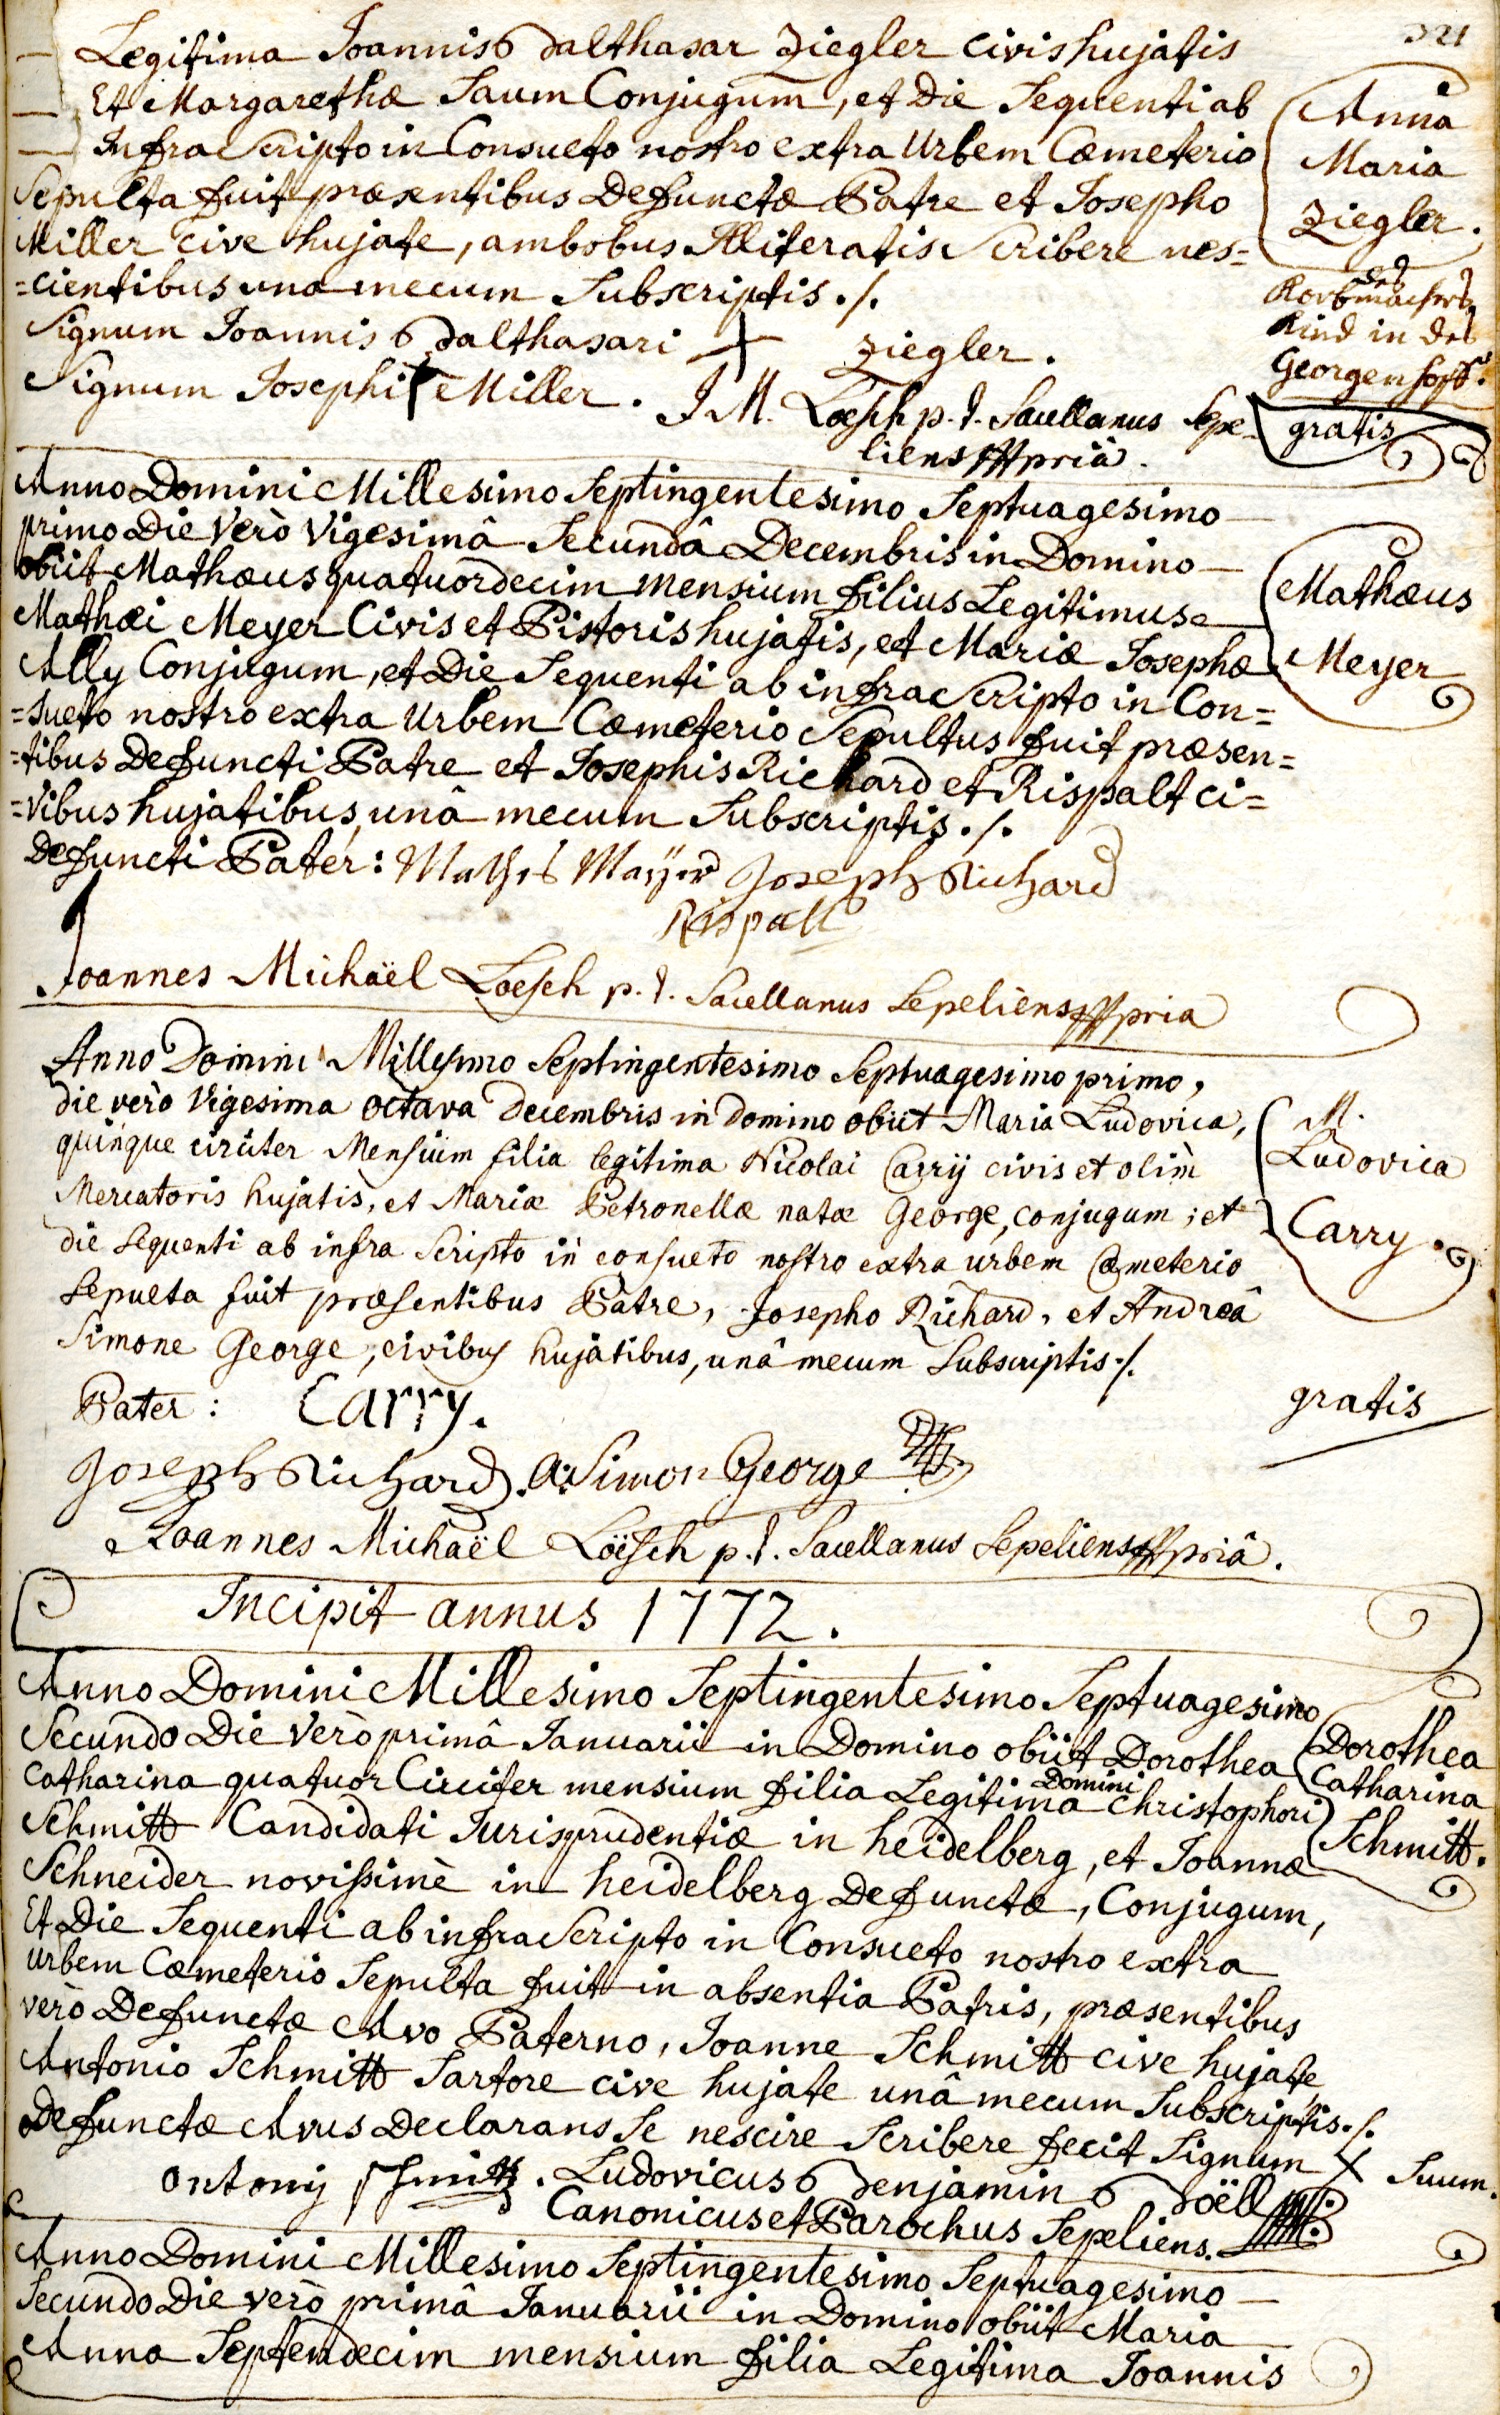 321
Legitima Joannis Balthasar Ziegler Civis hujatis
Et Margarethæ Saum Conjugum, et Die Sequenti ab
Infra Scripto in Consueto nostro extra Urbem Cœmeterio
Sepulta fuit præsentibus Defunctæ Patre et Josepho
Miller cive hujate, ambobus Illiteratis Scribere nes=
=cientibus una mecum Subscriptis ./.
Signum Joannis Balthasari + Ziegler.
Signum Josephi + Miller. J M. Loesch p. t. Sacellanus Sepe-
liens mppriâ.
Anna
Maria
Ziegler.
des
Korbmachers
Kind in der
Georgen
gratis
Anno Domini Millesimo Septingentesimo Septuagesimo
primo Die Verò Vigesimâ Secundâ Decembris in Domino
obiit Mathæus quatuordecim mensium filius Legitimus
Mathæi Meyer Civis et Pistoris hujatis, et Mariæ Josephæ
Ally Conjugum, et Die Sequenti ab infra Scripto in Con=
=sueto nostro extra Urbem Cœmeterio Sepultus fuit præsen=
=tibus Defuncti Patre et Josephis Richard et Rispalt ci=
=vibus hujatibus, unâ mecum Subscriptis ./.
Defuncti Pater: Mathis Mayer Joseph Richard
Rispalt
Joannes Michaël Loesch p. t. Sacellanus Sepeliens mppria
Mathæus
Meyer
Anno Domini Millesimo Septingentesimo Septuagesimo primo,
die verò Vigesima octava Decembris in Domino obiit Maria Ludovica,
quinque circiter Mensium filia legitima Nicolai Carry civis et olim
Mercatoris hujatis, et Mariæ Petronellæ natæ George, conjugum; et
die sequenti ab infra Scripto in consueto nostro extra urbem Cœmeterio
Sepulta fuit præsentibus Patre, Josepho Richard, et Andreâ
Simone George, civibus hujatibus, unâ mecum Subscriptis ./.
Pater: Carry.
Joseph Richard. A: Simon George
Joannes Michaël Loësch p. t. Sacellanus Sepeliens mppriâ.
M.
Ludovica
Carry.
gratis
Incipit annus 1772.
Anno Domini Millesimo Septingentesimo Septuagesimo
Secundo Die Verò primâ Januarii in Domino obiit Dorothea
Catharina quatuor Circiter mensium filia Legitima Domini Christophori
Schmitt Candidati Jurisprudentiæ in heidelberg, et Joannæ
Schneider novissimè in heidelberg Defunctæ, Conjugum,
Et Die Sequenti ab infra Scripto in Consueto nostro extra
Urbem Cœmeterio Sepulta fuit in absentia Patris, præsentibus
verò Defunctæ Avo Paterno, Joanne Schmitt cive hujate,
Antonio Schmitt Sartore cive hujate unâ mecum Subscriptis ./.
Defunctæ Avus Declarans Se nescire Scribere fecit Signum X Suum.
Antoni Schmitt. Ludovicus Benjamin Boëll
Canonicus et Parochus Sepeliens.
Dorothea
Catharina
Schmitt.
Anno Domini Millesimo Septingentesimo Septuagesimo
Secundo Die verò primâ Januarii in Domino obiit Maria
Anna Septemdecim mensium filia Legitima Joannis